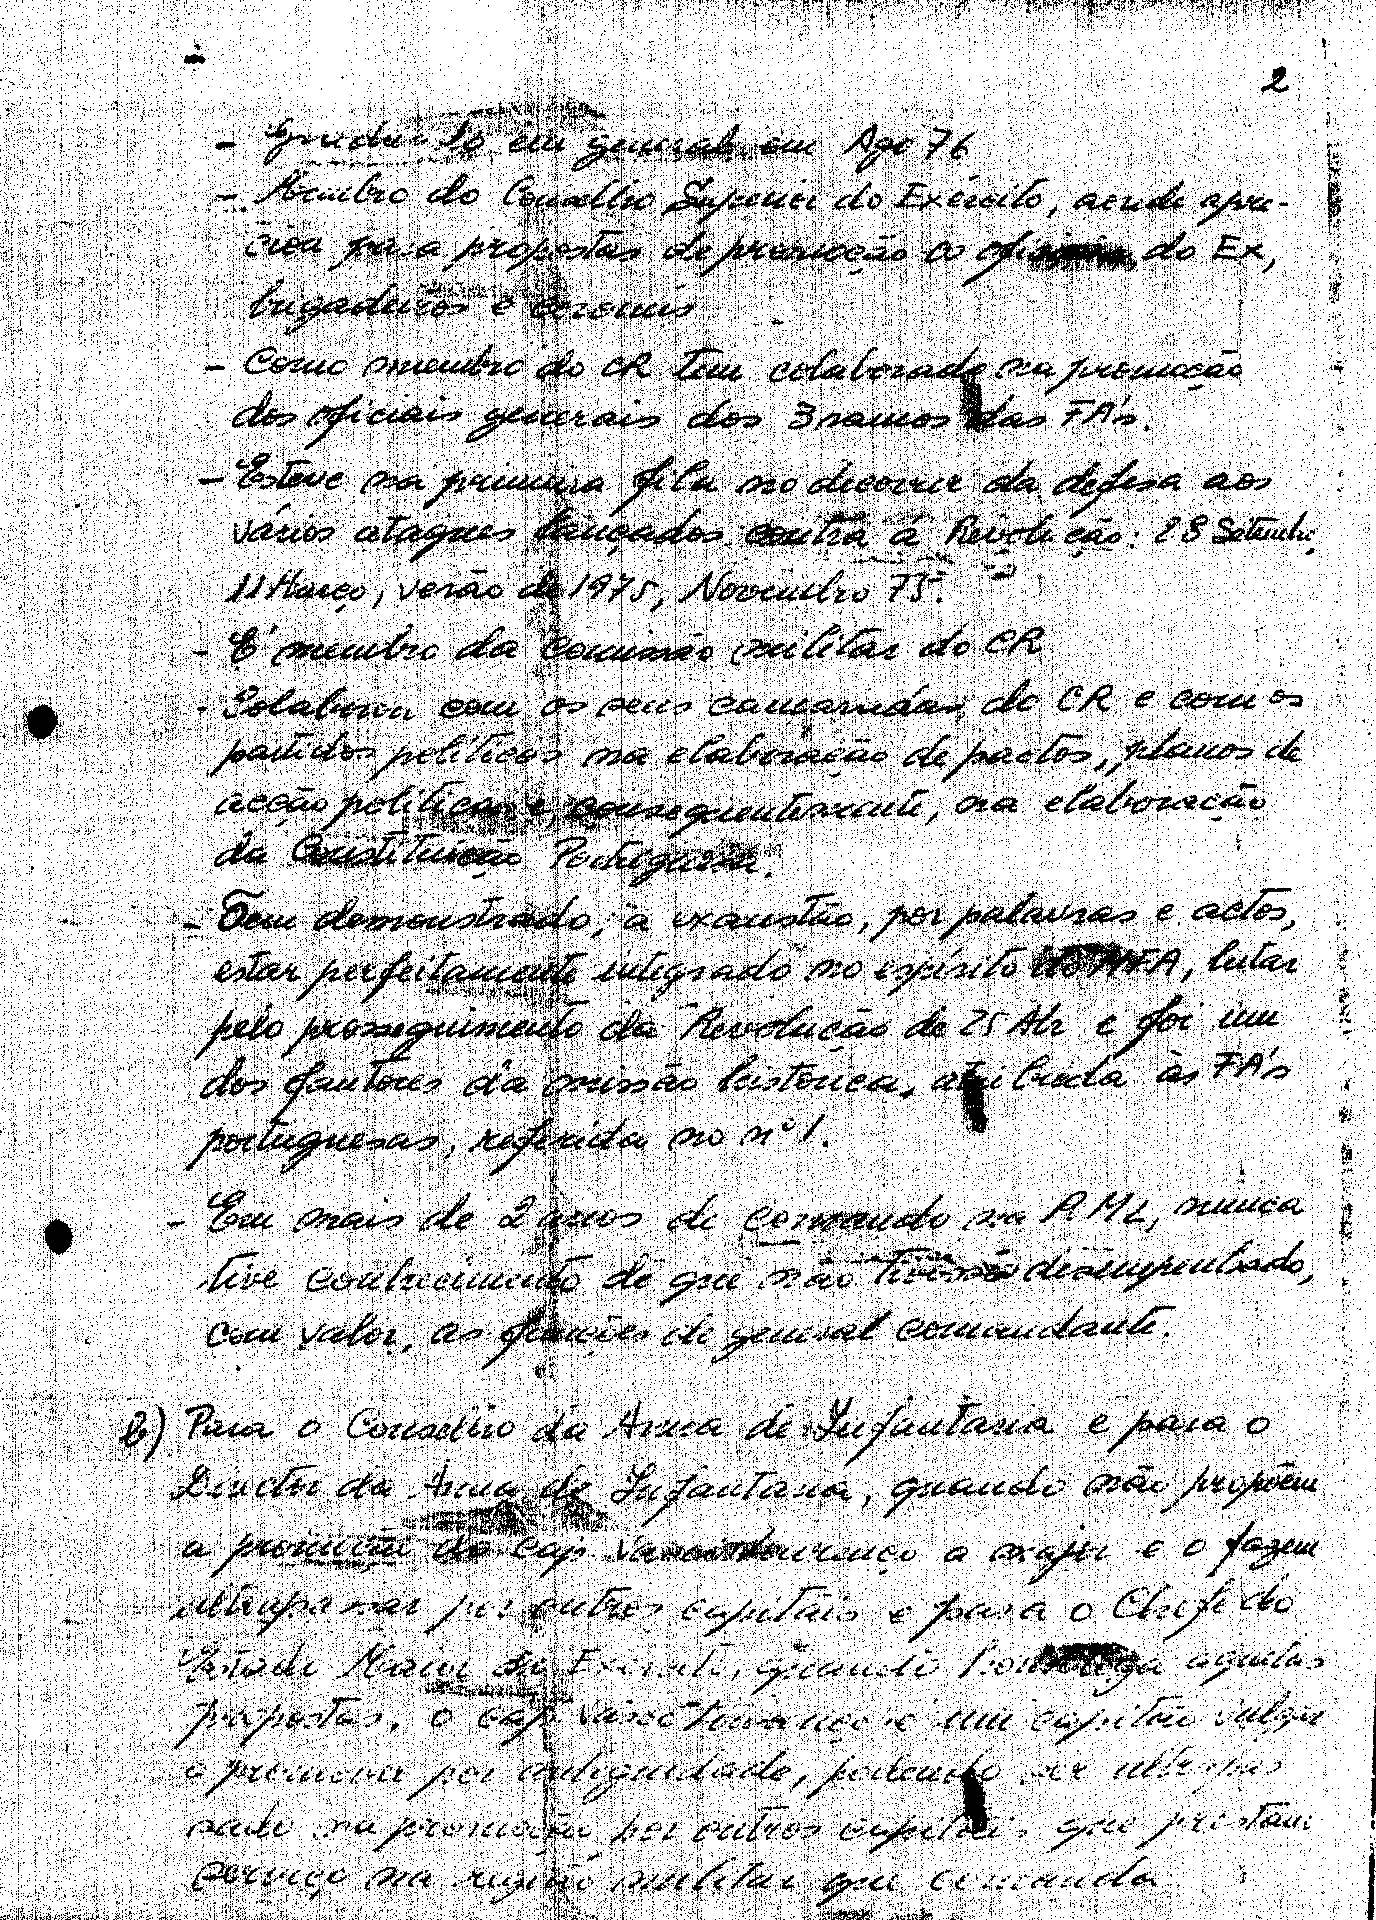 2
- Graduado em general em Ago 76
- Membro do Conselho Superior do Exército, aonde apre-
cia propostas de promoção do Ex,
brigadeiros e coroneis
- Como membro do CR tem colaborado na promoção
dos oficiais generais dos 3 ramos das FA's.
- Esteve na primeira fila no decorrer da defesa aos
vários ataques lançados contra á Revolução: 28 Setembro,
11 Março, verão de 1975, Novembro 75.
- É membro da Comissão militar do CR
- Colaborou com os seus camaradas do CR e com os
partidos políticos na elaboração de pactos, planos de
acção política e, consequentemente, na elaboração
da Constituição Portuguesa.
- Tem demonstrado, à exaustão, por palavras e actos,
estar perfeitamente integrado no espírito do MFA, lutar
pelo prosseguimento da Revolução de 25 Abr e foi um
dos fautores da missão histórica, atribuída às FA's
portuguesas, referida no nº 1.
- Em mais de 2 anos de comando na RML, nunca
tive conhecimento de que não tivesse desempenhado,
com valor, as funções de general comandante.
b) Para o Conselho da Arma de Infantaria e para o
Director da Arma de Infantaria, quando não propõem
a promoção do cap Vasco Lourenço a major e o fazem
ultrapassar por outros capitães e para o Chefe do
Estado Maior do Exército, quando homologa aquelas
propostas, o cap Vasco Lourenço é um capitão vulgar
a promover por antiguidade, podendo ser ultrapas
sado na promoção por outros capitães que prestam
serviço na região militar que comanda